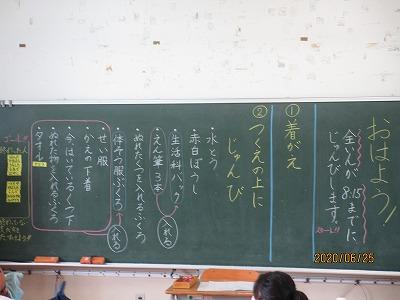 おはよう!
全いんが8:15までに
じゅんびします。
スタート!!
① 着がえ
② つくえの上に
じゅんび
・水とう
・赤白ぼうし
・生活科バック
・えん筆3本
入れる
・ぬれたくつを入れるふくろ
・体そう服ぶくろ
入れる
・せい服
・かえの下着
・今はいているくつ下
・ぬれた物を入れるふくろ
・タオル
ゴール!!
2020/06/25